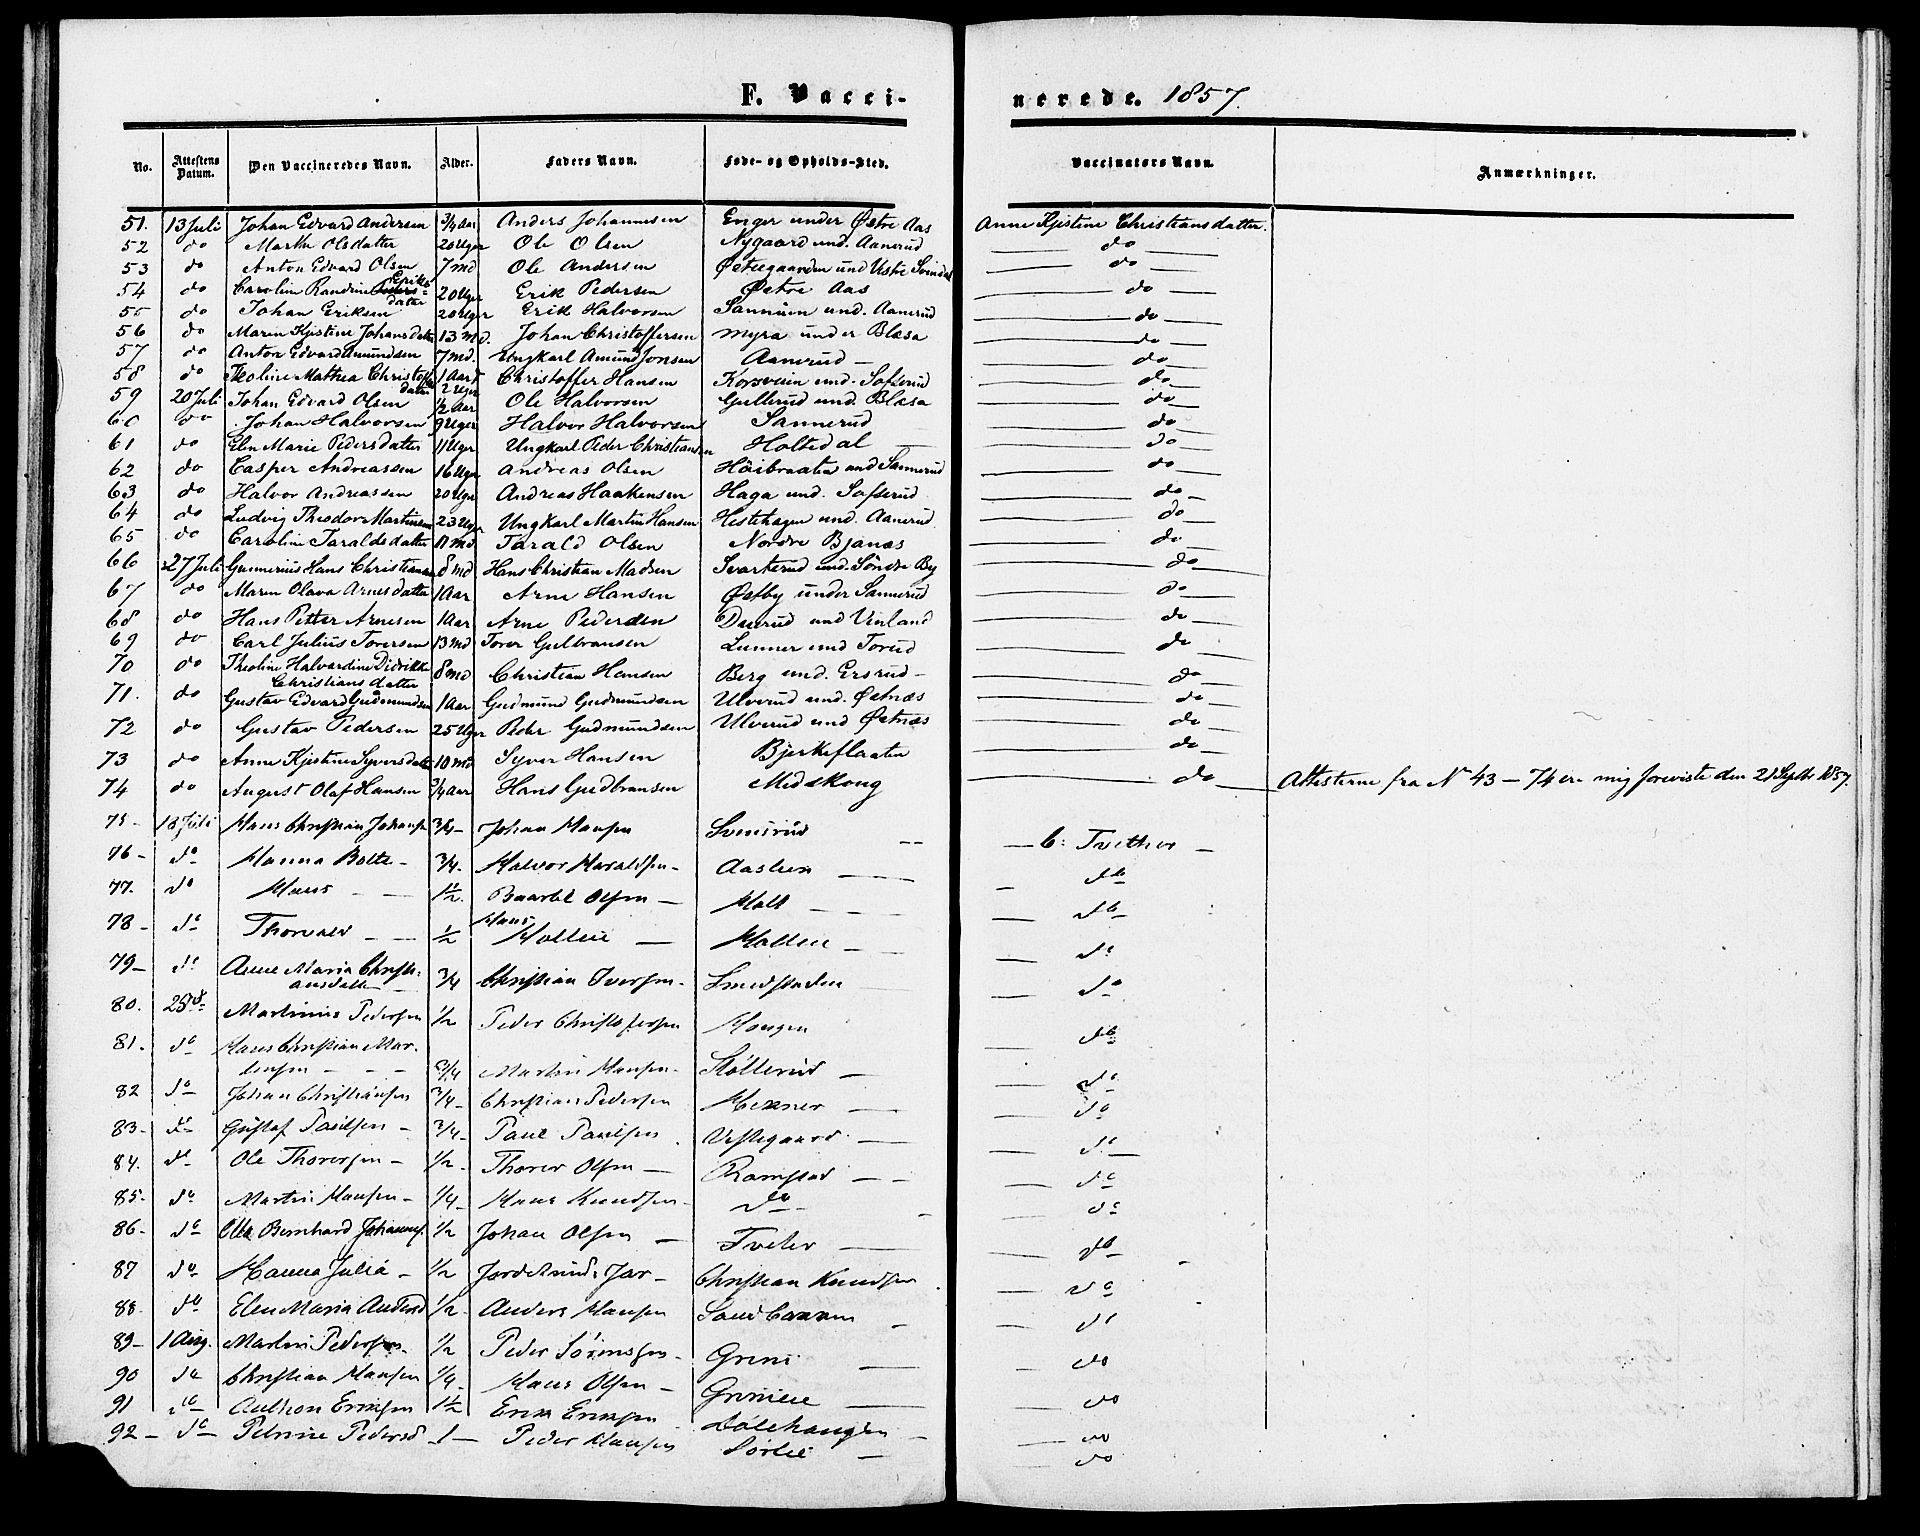 F. Vacci-
nerede. 1857.
No. Attestens Datum. Den Vaccineredes Navn. Alder. Faders Navn. Føde- og Opholds-Sted. Vaccinators Navn. Anmærkninger.
51. 13 Juli Johan Edvard Andersen 3/4 Aar Anders Johannesen Enger under Østre Aas Anne Kjstine Christiansdatter.
52 do Marthe Olsdatter 20 Uger Ole Olsen Nygaard und. Aanerud do
53 do Anton Edvard Olsen 7 md Ole Andersen Østregaarden und Vestre Svindal do
54 do Caroline Randine Eriks-datter 20 Uger Erik Pedersen Østre Aas do
55 do Johan Eriksen 20 Uger Erik Halvorsen und. Aanerud do
56 do Maren Kjistine Johansdatter 13 md. Johan Christoffersen Myra under Blæsa do
57 do Anton Edvard Amundsen 7 md. Ungkarl Amund Jonsen Aanerud — do
58 do Mathea Christoffersdatter 1 Aar 2 Uger Christoffer Hansen Korsveien und. Sofserud do
59 20 Juli Johan Edvard Olsen 1/2 Aar Ole Halvorsen Gullerud und. Blæsa do
60 do Johan Halvorsen 9 Uger Halvor Halvorsen Sannerud do
61 do Elen Marie Pedersdatter 11 Uger Ungkarl Peder Christiansen Holtedal do
62 do Casper Andreassen 16 Uger Andreas Olsen Høibraaten und Sannerud do
63 do Halvor Andreassen 20 Uger Andreas Haakensen Haga und. Sofserud do
64 do Ludvig Theodor Martinsen 23 Uger Ungkarl Martin Hansen Hestehagen und. Aanerud do
65 do Caroline Taraldsdatter 11 md Tarald Olsen Nordre Bjanæs do
66 27 Juli Gunnerius Hans Christiansen 8 md Hans Christian Madsen Svarterud und. Søndre By do
67 do Maren Olava Arnesdatter 1 Aar Arne Hansen Østby under Sannerud do
68 do Hans Petter Arnesen 1 Aar Arne Pedersen und Vinland do
69 do Carl Julius Toversen 13 md Tover Gulbransen Lunner und Torud do
70 do Theoline Halvardine Didrikke Christiansdatter 8 md Christian Hansen Berg und. Ersrud — do
71. do Gustav Edvard Gudmundsen 1 Aar Gudmund Gudmundsen Ulverud und. Østnæs do
72 do Gustav Pedersen 25 Uger Peder Gudmundsen Ulverud und Østnæs do
73 do Anne Kjistine Syversdatter 10 md Syver Hansen Bjerkeflaaten do
74 do August Olaf Hansen 3/4 Aar Hans Gudbransen Midskoug do Attesterne fra No 43 — 74 ere mig foreviste den 21 Septbr 1857.
75 - 18 Juli Hans Christian Johans. 3/4 - Johan Hansen Svensrud C: Tvether
76 - do Hanna Bolte - 3/4. Halvor Haraldsen - Aaslien do
77. do Hans 1 1/2. Baarde Olsen — Holt do
78 - do Thorvald 1/2 Hans Hollie — Hollie do
79 - do Anne Maria Christiansdatter 3/4 Christian Iversen - Smedstaden do
80. 25 do Martinius Pedersen 1/2 Peder Christofersen Haugen do
81. do Hans Christian Martinsen 3/4 Martin Hansen - Støtterud do
82 do Johan Christiansen 3/4 - Christian Pedersen Hexner do
83 - do Gustaf Paulsen - 3/4 - Paul Paulsen Vestegaard do
84. do Ole Thorersen - 1/2. Thorer Olsen — Ramstad do
85 - do Martin Hansen - 1/4 - Hans Knudsen - do do
86 - do Bernhard Johannes. 1/2 Johan Olsen — Tveter do
87 do Hanna Julia - 1/2 Christian Knudsen do
88 - do Elen Maria Andersd 1/2 - Anders Hansen do
89 - 1 Aug. Martin Pedersen 1/2 Peder Sørensen - Greni do
90 do Christian Hansen 1/4 - Hans Olsen - do
91 do Anthon Eriksen 1 1/2 Erik Eriksen Dølehaugen do
92 - do Petrine Pedersd 1 — Peder Hansen Sørlie do